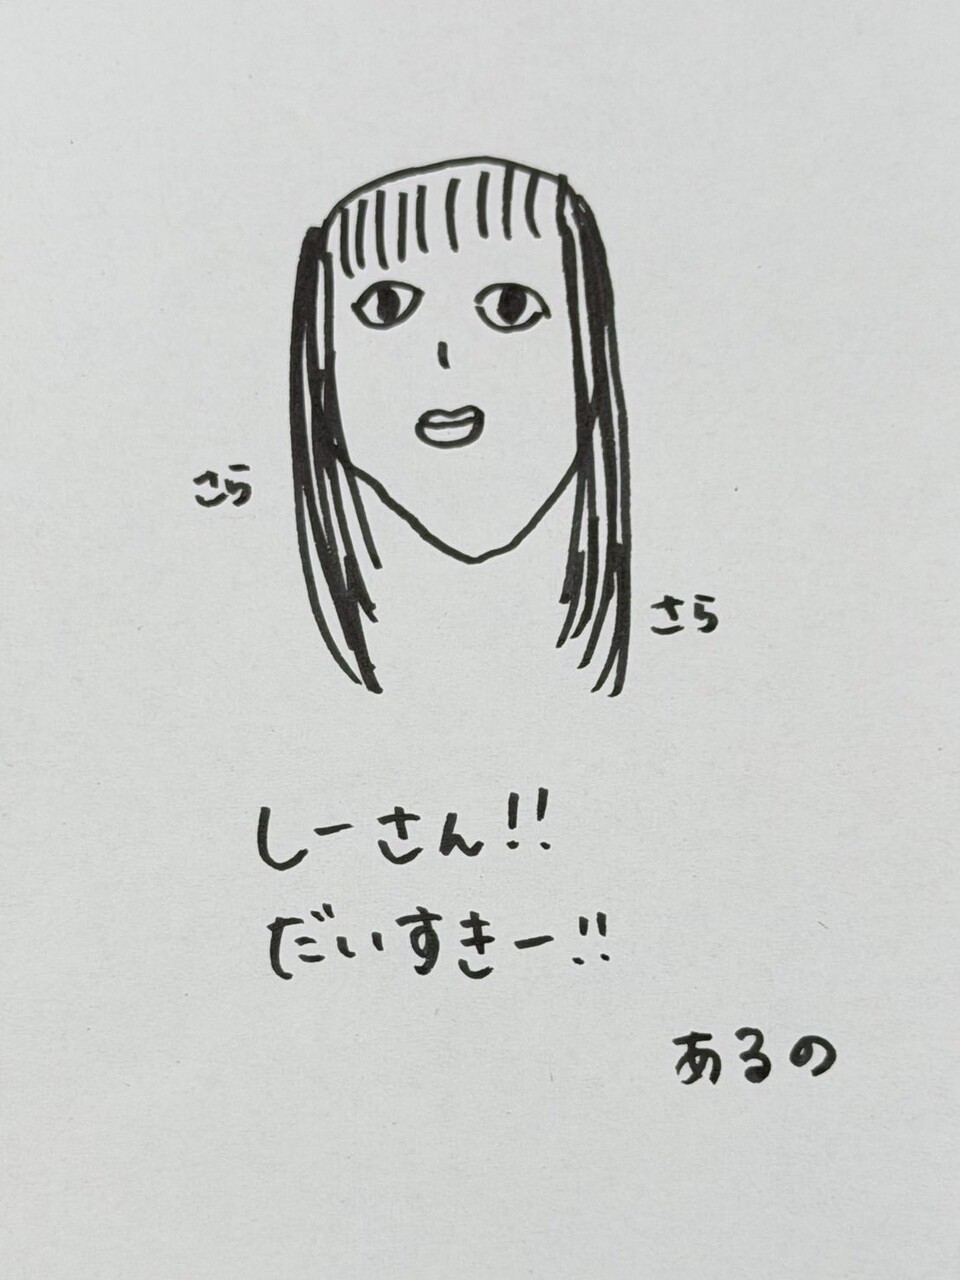 さら
さら
しーさん!!
だいすきー!!
あるの